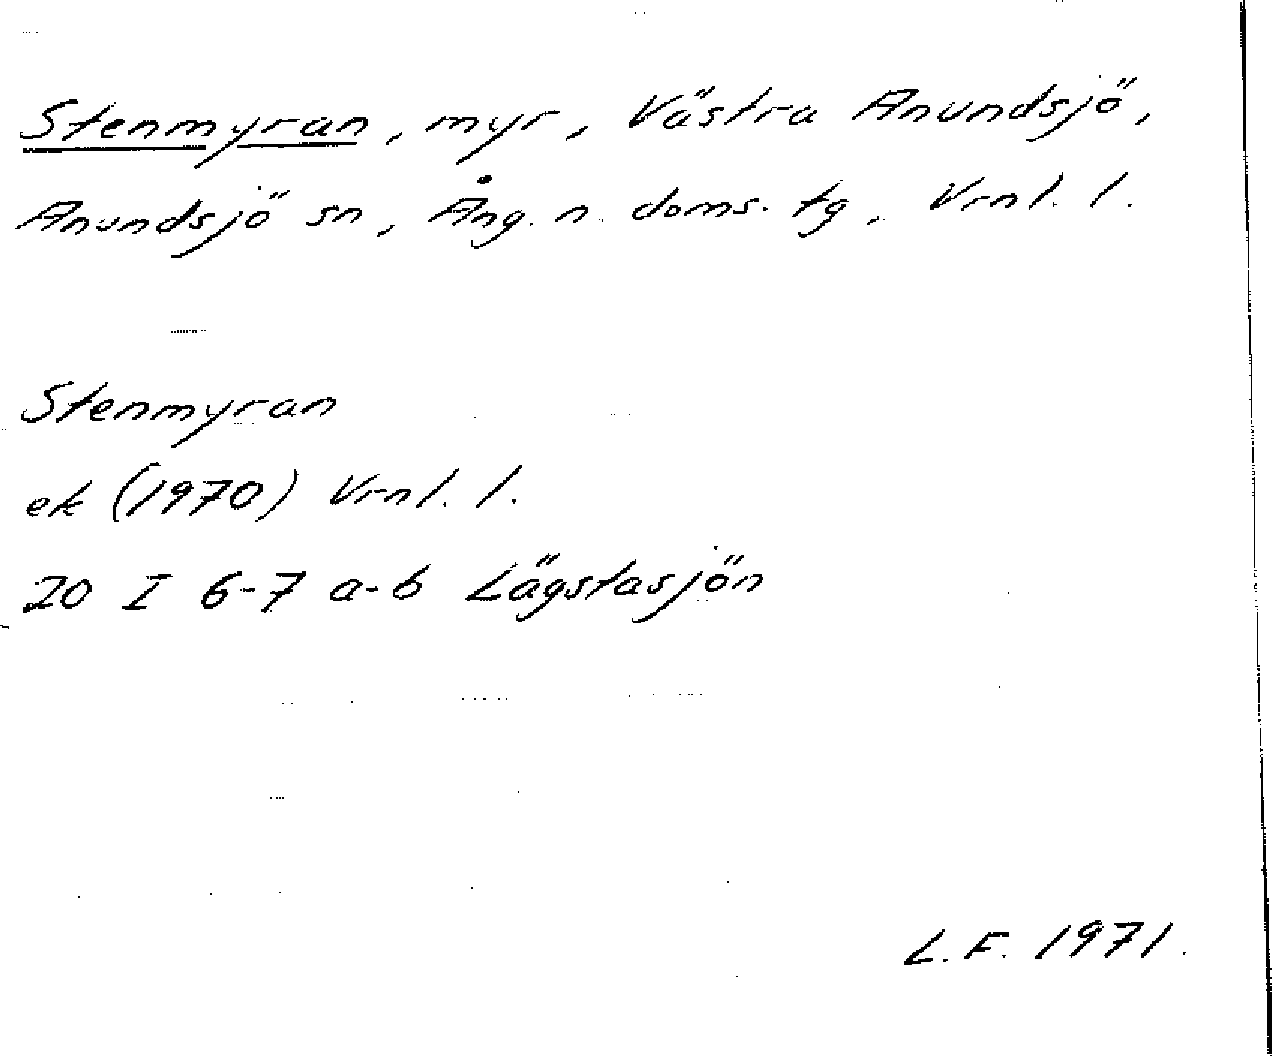 Stenmyran, myr, Västra Anundsjö,
Anundsjö sn, Ång. n. doms. tg, Vrnl. l.
Stenmyran
ek (1970) Vrnl. l.
20 I 6-7 a-b Lägstasjön
L.F. 1971.